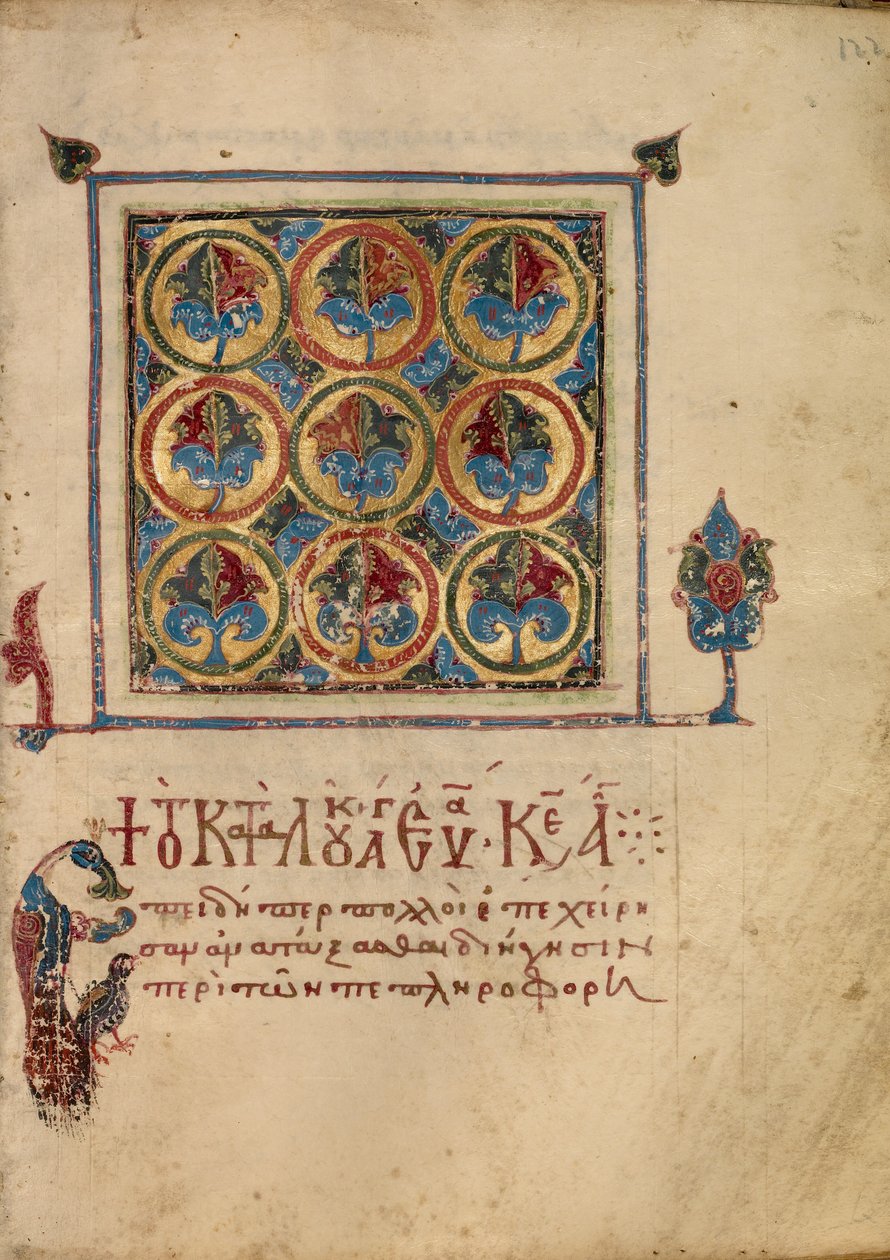 122
† Τὸ Κατὰ Λουκ. ἅγ. Εὐα. Κε. Α
Ἐπειδήπερ πολλοὶ ἐπεχείρη
σαν ἀνατάξασθαι διήγησιν
περὶ τῶν πεπληροφορη